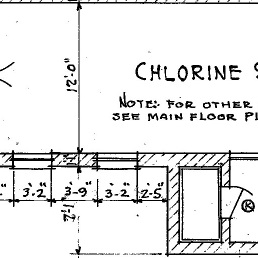 12'-0"
CHLORINE S
NOTE:- FOR OTHER
SEE MAIN FLOOR PL
3'-2" 3'-9" 3'-2" 2'-5"
K